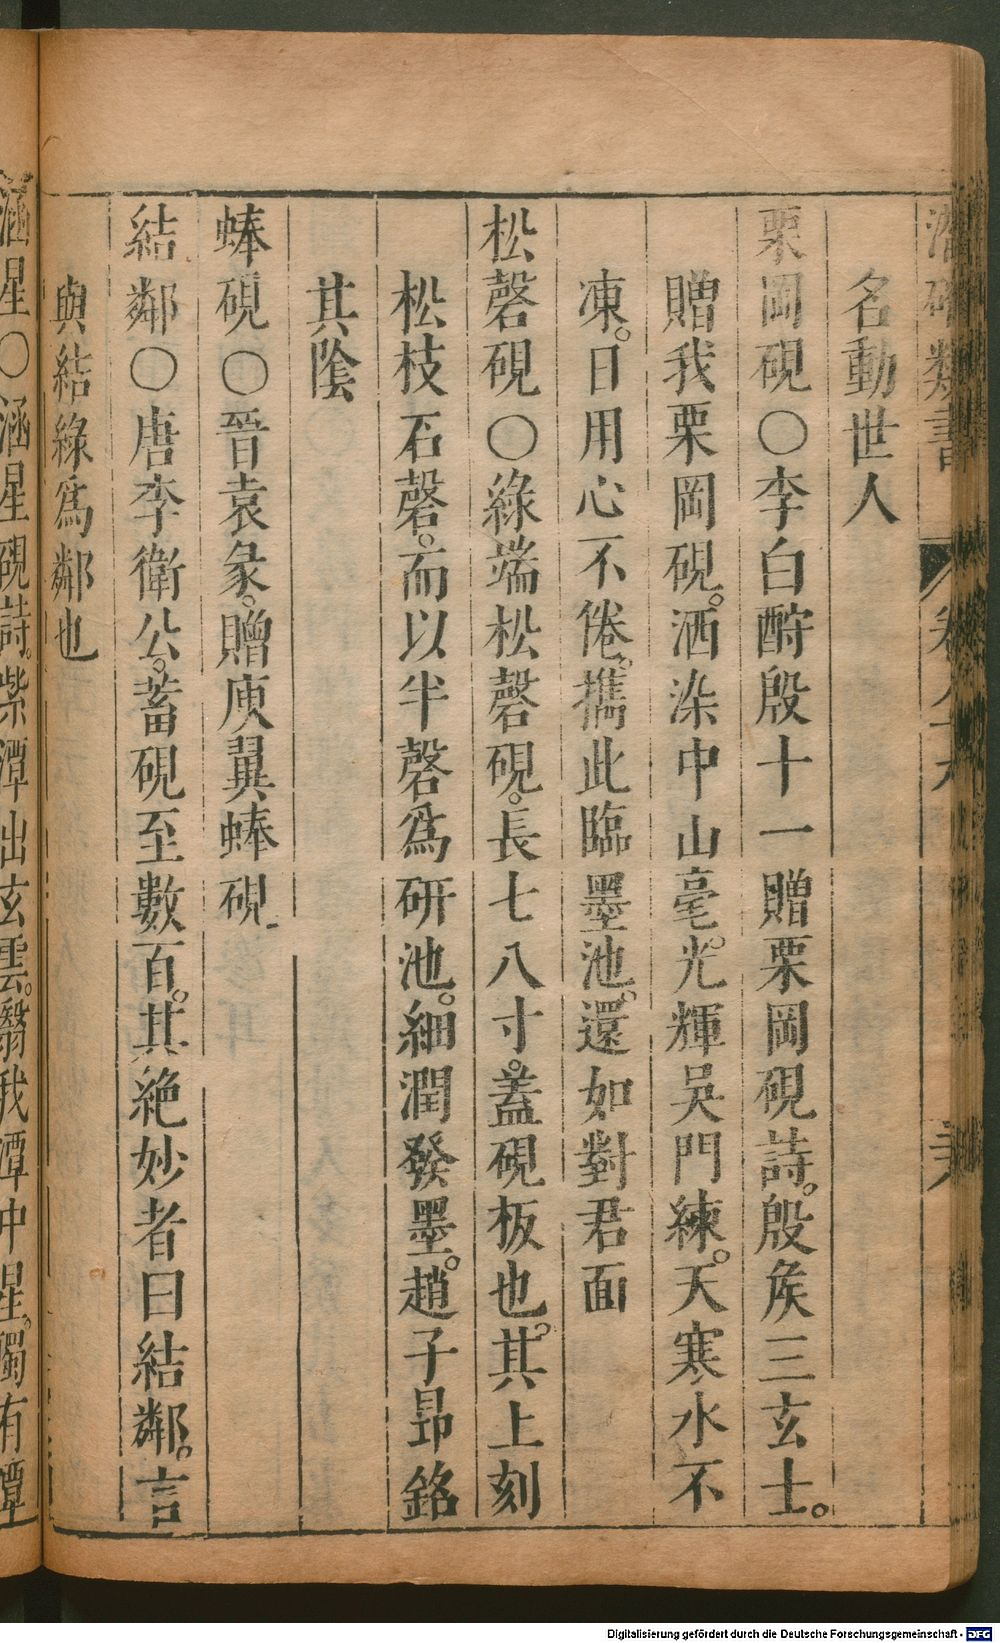 潛確類書
名動世人
栗岡硯〇李白酧殷十一贈栗岡硯詩。殷矦三玄士。
贈我栗岡硯。洒染中山毫。光輝吳門練。天寒水不
凍。日用心不倦。携此臨墨池。還如對君面
松磬硯〇綠端松磬硯。長七八寸。蓋硯板也。其上刻
松枝石磬。而以半磬爲研池。細潤發墨。趙子昂銘
其陰
蜯硯〇晉袁彖。贈庾翼蜯硯
結鄰〇唐李衛公。蓄硯至數百。其絶妙者曰結鄰。言
與結綠爲鄰也
涵星〇涵星硯詩。紫潭出玄雲。翳我潭中星。獨有潭
Digitalisierung gefördert durch die Deutsche Forschungsgemeinschaft - DFG